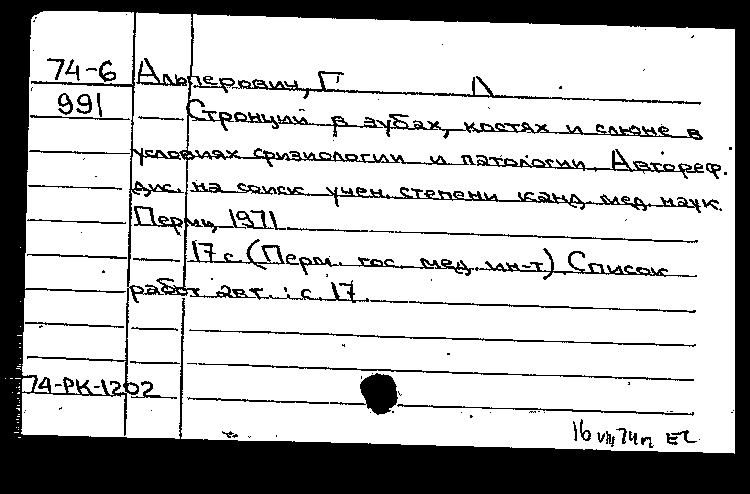 74-6 Альперович, Г Л
991 Стронций в зубах, костях и слюне в
условиях физиологии и патологии. Автореф.
дис. на соиск учен. степени канд. мед. наук.
Пермь, 1971
17 с (Перм. гос. мед. ин-т). Список
работ авт.: с. 17.
74-РК-1202
16 VIII 74г.